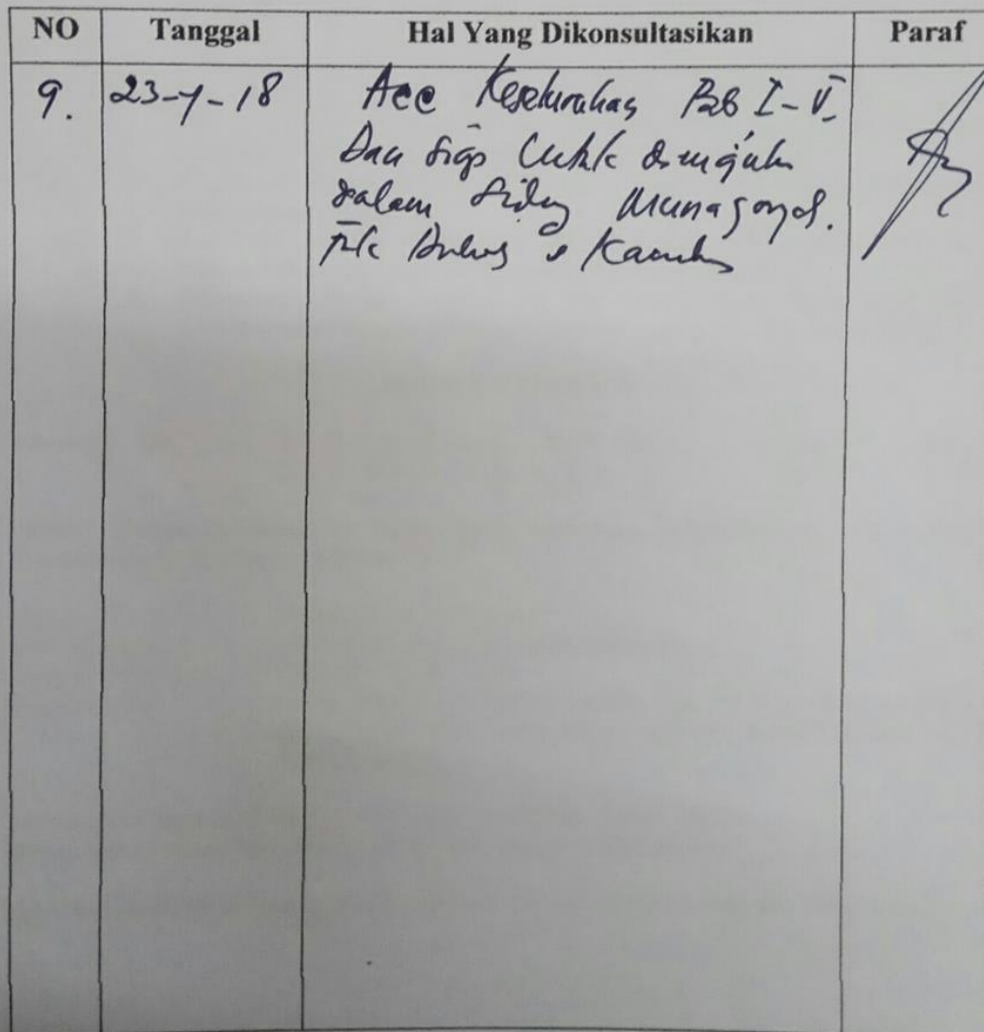 NO Tanggal Hal Yang Dikonsultasikan Paraf
9. 23-7-18 Acc Keseluruhan Bab I-V.
Dan siap Untuk diujikan
dalam Sidang Munaqosah.